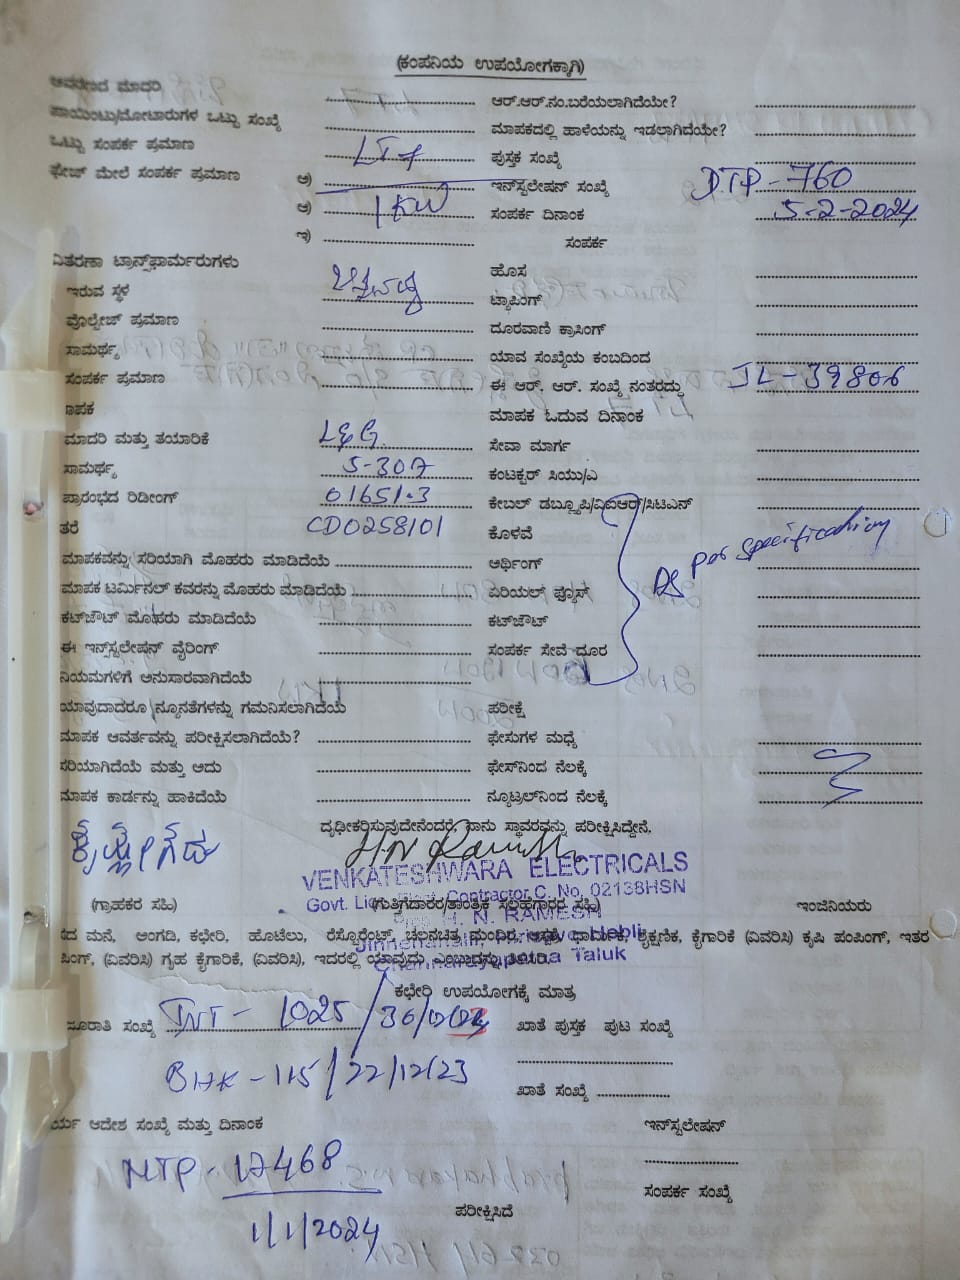 (ಕಂಪನಿಯ ಉಪಯೋಗಕ್ಕಾಗಿ)
ಆವರಣದ ಮಾದರಿ
ಆರ್.ಆರ್.ನಂ.ಬರೆಯಲಾಗಿದೆಯೇ?
ಪಾಯಿಂಟು/ಮೋಟಾರುಗಳ ಒಟ್ಟು ಸಂಖ್ಯೆ
ಮಾಪಕದಲ್ಲಿ ಹಾಳೆಯನ್ನು ಇಡಲಾಗಿದೆಯೇ?
ಒಟ್ಟು ಸಂಪರ್ಕ ಪ್ರಮಾಣ LT7 ಪುಸ್ತಕ ಸಂಖ್ಯೆ
ಫೇಜ್ ಮೇಲೆ ಸಂಪರ್ಕ ಪ್ರಮಾಣ ಅ) ಇನ್‌ಸ್ಟಲೇಷನ್ ಸಂಖ್ಯೆ DTP-760
ಆ) 1KW ಸಂಪರ್ಕ ದಿನಾಂಕ 5-2-2024
ಇ) ಸಂಪರ್ಕ
ವಿತರಣಾ ಟ್ರಾನ್ಸ್‌ಫಾರ್ಮರುಗಳು
ಹೊಸ
ಇರುವ ಸ್ಥಳ ಟ್ಯಾಪಿಂಗ್
ವೊಲ್ಟೇಜ್ ಪ್ರಮಾಣ ದೂರವಾಣಿ ಕ್ರಾಸಿಂಗ್
ಸಾಮರ್ಥ್ಯ ಯಾವ ಸಂಖ್ಯೆಯ ಕಂಬದಿಂದ
ಸಂಪರ್ಕ ಪ್ರಮಾಣ ಈ ಆರ್. ಆರ್. ಸಂಖ್ಯೆ ನಂತರದ್ದು JL-39806
ಾಪಕ ಮಾಪಕ ಓದುವ ದಿನಾಂಕ
ಮಾದರಿ ಮತ್ತು ತಯಾರಿಕೆ L&G ಸೇವಾ ಮಾರ್ಗ
ಸಾಮರ್ಥ್ಯ 5-30A ಕಂಟಕ್ಟರ್ ಸಿಯು/ಎ
ಪ್ರಾರಂಭದ ರಿಡೀಂಗ್ 01651.3 ಕೇಬಲ್ ಡಬ್ಲ್ಯೂಪಿ/ವಿಐಆರ್/ಸಿಟಿಎಸ್
ತರೆ CD0258101 ಕೊಳವೆ
ಮಾಪಕವನ್ನು ಸರಿಯಾಗಿ ಮೊಹರು ಮಾಡಿದೆಯೆ ಅರ್ಥಿಂಗ್ As per specification
ಮಾಪಕ ಟರ್ಮಿನಲ್ ಕವರನ್ನು ಮೊಹರು ಮಾಡಿದೆಯೆ ಏರಿಯಲ್ ಫ್ಯೂಸ್
ಕಟ್‌ಔಟ್ ಮೊಹರು ಮಾಡಿದೆಯೆ ಕಟ್‌ಔಟ್
ಈ ಇನ್ಸ್‌ಟಲೇಷನ್ ವೈರಿಂಗ್ ಸಂಪರ್ಕ ಸೇವೆ ದೂರ
ನಿಯಮಗಳಿಗೆ ಅನುಸಾರವಾಗಿದೆಯೆ
ಯಾವುದಾದರೂ ನ್ಯೂನತೆಗಳನ್ನು ಗಮನಿಸಲಾಗಿದೆಯೆ ಪರೀಕ್ಷೆ
ಮಾಪಕ ಆವರ್ತವನ್ನು ಪರೀಕ್ಷಿಸಲಾಗಿದೆಯೆ? ಫೇಸುಗಳ ಮಧ್ಯೆ
ಸರಿಯಾಗಿದೆಯೆ ಮತ್ತು ಅದು ಫೇಸ್‌ನಿಂದ ನೆಲಕ್ಕೆ
ಮಾಪಕ ಕಾರ್ಡನ್ನು ಹಾಕಿದೆಯೆ ನ್ಯೂಟ್ರಲ್‌ನಿಂದ ನೆಲಕ್ಕೆ
ದೃಢೀಕರಿಸುವುದೇನೆಂದರೆ, ನಾನು ಸ್ಥಾವರವನ್ನು ಪರೀಕ್ಷಿಸಿದ್ದೇನೆ.
H N Ramesh
VENKATESHWARA ELECTRICALS
Govt. Lic. Elect. Contractor C. No. 02138HSN
(ಗ್ರಾಹಕರ ಸಹಿ) (ಗುತ್ತಿಗೆದಾರರ/ತಾಂತ್ರಿಕ ಸಲಹೆಗಾರರ ಸಹಿ) ಇಂಜಿನಿಯರು
Prop. H. N. RAMESH
ದ ಮನೆ, ಅಂಗಡಿ, ಕಛೇರಿ, ಹೊಟೆಲು, ರೆಸ್ಟೊರೆಂಟ್, ಚಲನಚಿತ್ರ ಮಂದಿರ, ಆಸ್ಪತ್ರೆ, ಧಾರ್ಮಿಕ, ಶೈಕ್ಷಣಿಕ, ಕೈಗಾರಿಕೆ (ವಿವರಿಸಿ) ಕೃಷಿ ಪಂಪಿಂಗ್, ಇತರ
Hobli,
ಪಿಂಗ್, (ವಿವರಿಸಿ) ಗೃಹ ಕೈಗಾರಿಕೆ, (ವಿವರಿಸಿ), ಇದರಲ್ಲಿ ಯಾವುದು ಎಂಬುದನ್ನು ತಿಳಿಸಿ.
Channarayapatna Taluk
ಕಛೇರಿ ಉಪಯೋಗಕ್ಕೆ ಮಾತ್ರ
ಜೂರಾತಿ ಸಂಖ್ಯೆ INT- 1025 ಖಾತೆ ಪುಸ್ತಕ ಪುಟ ಸಂಖ್ಯೆ
BHK-115/22/12/23
ಖಾತೆ ಸಂಖ್ಯೆ
ರ್ಯ ಆದೇಶ ಸಂಖ್ಯೆ ಮತ್ತು ದಿನಾಂಕ ಇನ್‌ಸ್ಟಲೇಷನ್
MTP-17468
ಸಂಪರ್ಕ ಸಂಖ್ಯೆ
1/1/2024 ಪರೀಕ್ಷಿಸಿದೆ